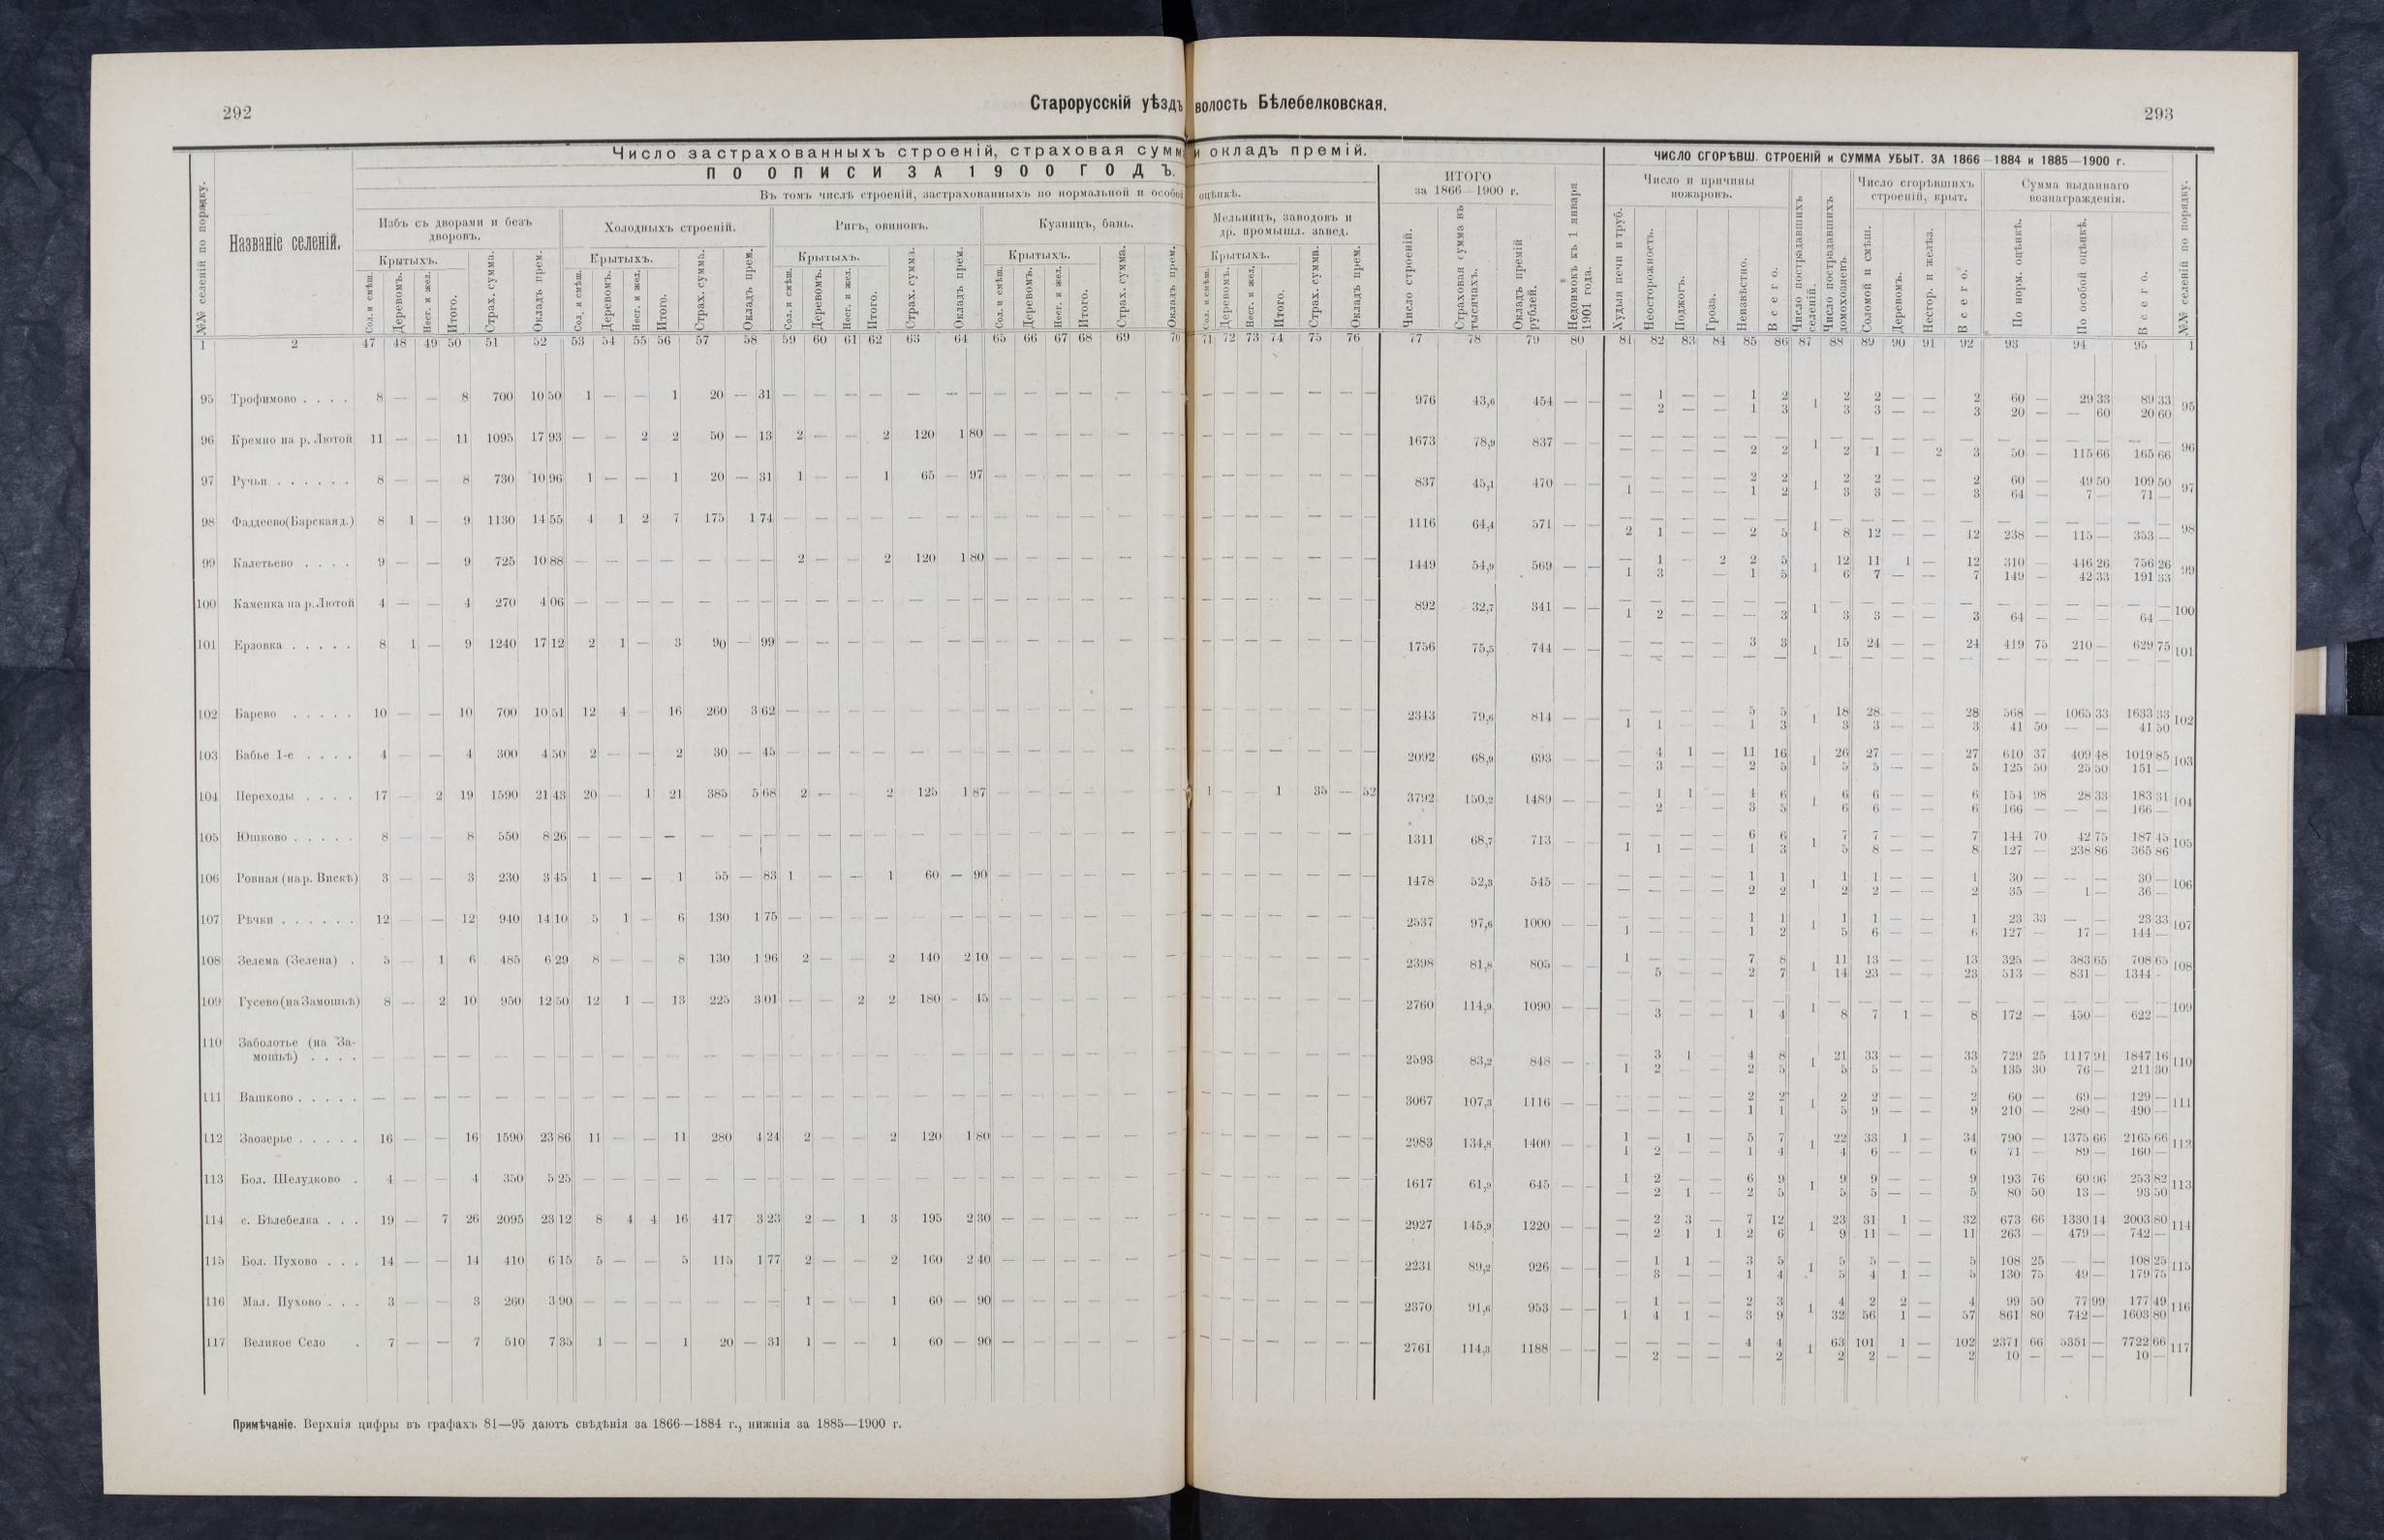 292
Старорусскій уѣздъ
волость Бѣлебелковская.
293
Число застрахованныхъ строеній, страховая сумм и окладъ премій.
ПО ОПИСИ ЗА 1900 ГОДЪ.
Въ томъ числѣ строеній, застрахованныхъ по нормальной и особой оцѣнкѣ.
ИТОГО за 1866—1900 г.
ЧИСЛО СГОРѢВШ. СТРОЕНІЙ и СУММА УБЫТ. ЗА 1866—1884 и 1885—1900 г.
№№ селеній по порядку.
Названіе селеній.
Избъ съ дворами и безъ дворовъ.
Холодныхъ строеній.
Ригъ, овиновъ.
Кузницъ, бань.
Мельницъ, заводовъ и др. промышл. завед.
Число и причины пожаровъ.
Число сгорѣвшихъ строеній, крыт.
Сумма выданнаго вознагражденія.
Крытыхъ. Крытыхъ. Крытыхъ. Крытыхъ. Крытыхъ.
Сол. и смѣш. Деревомъ. Несг. и жел. Итого. Страх. сумма. Окладъ прем.
Сол. и смѣш. Деревомъ. Несг. и жел. Итого. Страх. сумма. Окладъ прем.
Сол. и смѣш. Деревомъ. Несг. и жел. Итого. Страх. сумма. Окладъ прем.
Сол. и смѣш. Деревомъ. Несг. и жел. Итого. Страх. сумма. Окладъ прем.
Сол. и смѣш. Деревомъ. Несг. и жел. Итого. Страх. сумма. Окладъ прем.
Число строеній. Страховая сумма въ тысячахъ. Окладъ премій рублей. Недоимокъ къ 1 января 1901 года.
Худыя печи и труб. Неосторожность. Поджогъ. Гроза. Неизвѣстно. Всего. Число пострадавшихъ селеній. Число пострадавшихъ домохозяевъ. Соломой и смѣш. Деревомъ. Несгор. и желѣз. Всего. По норм. оцѣнкѣ. По особой оцѣнкѣ. Всего. №№ селеній по порядку.
1 2 47 48 49 50 51 52 53 54 55 56 57 58 59 60 61 62 63 64 65 66 67 68 69 70 71 72 73 74 75 76 77 78 79 80 81 82 83 84 85 86 87 88 89 90 91 92 93 94 95 1
95 Трофимово . . . . 8 — — 8 700 10 50 1 — — 1 20 — 31 — — — — — — — — — — — — — — — — — — 976 43,6 454 — — — 1 — — 1 2 1 2 2 — — 2 60 — 29 33 89 33 95
— 2 — — 1 3 3 3 — — 3 20 — — 60 20 60
96 Кремно на р. Лютой 11 — — 11 1095 17 93 — — 2 2 50 — 13 2 — — 2 120 1 80 — — — — — — — — — — — — 1673 78,9 837 — — — — — — — — 1 — — — — — — — — — — — 96
— — — — 2 2 2 1 — 2 3 50 — 115 66 165 66
97 Ручьи . . . . . . 8 — — 8 730 10 96 1 — — 1 20 — 31 1 — — 1 65 — 97 — — — — — — — — — — — — 837 45,1 470 — — — — — — 2 2 1 2 2 — — 2 60 — 49 50 109 50 97
1 — — — 1 2 3 3 — — 3 64 — 7 — 71 —
98 Фаддеево (Барская д.) 8 1 — 9 1130 14 55 4 1 2 7 175 1 74 — — — — — — — — — — — — — — — — — — 1116 64,4 571 — — — — — — — — 1 — — — — — — — — — — — 98
2 1 — — 2 5 8 12 — — 12 238 — 115 — 353 —
99 Калетьево . . . . 9 — — 9 725 10 88 — — — — — — — 2 — — 2 120 1 80 — — — — — — — — — — — — 1449 54,9 569 — — — 1 — 2 2 5 1 12 11 1 — 12 310 — 446 26 756 26 99
1 3 — 1 5 6 7 — — 7 149 — 42 33 191 33
100 Каменка на р. Лютой 4 — — 4 270 4 06 — — — — — — — — — — — — — — — — — — — — — — — — 892 32,7 341 — — — — — — — — 1 — — — — — — — — — — — 100
1 2 — — — 3 3 3 — — 3 64 — — — 64 —
101 Ерзовка . . . . . 8 1 — 9 1240 17 12 2 1 — 3 90 — 99 — — — — — — — — — — — — — — — — — — 1756 75,5 744 — — — — — — 3 3 1 15 24 — — 24 419 75 210 — 629 75 101
— — — — — — — — — — — — — — — — —
102 Барево . . . . . 10 — — 10 700 10 51 12 4 — 16 260 3 62 — — — — — — — — — — — — — — — — — — 2343 79,6 814 — — — — — — 5 5 1 18 28 — — 28 568 — 1065 33 1633 33 102
1 1 — — 1 3 3 3 — — 3 41 50 — — 41 50
103 Бабье 1-е . . . . 4 — — 4 300 4 50 2 — — 2 30 — 45 — — — — — — — — — — — — — — — — — — 2092 68,9 693 — — — 4 1 — 11 16 1 26 27 — — 27 610 37 409 48 1019 85 103
— 3 — — 2 5 5 5 — — 5 125 50 25 50 151 —
104 Переходы . . . . 17 — 2 19 1590 21 43 20 — 1 21 385 5 68 2 — — 2 125 1 87 — — — — — — 1 — — 1 35 — 52 3792 150,2 1489 — — — 1 1 — 4 6 1 6 6 — — 6 154 98 28 33 183 31 104
— 2 — — 3 5 6 6 — — 6 166 — — — 166 —
105 Юшково . . . . . 8 — — 8 550 8 26 — — — — — — — — — — — — — — — — — — — — — — — — 1311 68,7 713 — — — — — — 6 6 1 7 7 — — 7 144 70 42 75 187 45 105
1 1 — — 1 3 5 8 — — 8 127 — 238 86 365 86
106 Ровная (на р. Вискѣ) 3 — — 3 230 3 45 1 — — 1 55 — 83 1 — — 1 60 — 90 — — — — — — — — — — — — 1478 52,3 545 — — — — — — 1 1 1 1 1 — — 1 30 — — — 30 — 106
— — — — 2 2 2 2 — — 2 35 — 1 — 36 —
107 Рѣчки . . . . . . 12 — — 12 940 14 10 5 1 — 6 130 1 75 — — — — — — — — — — — — — — — — — — 2537 97,6 1000 — — — — — — 1 1 1 1 1 — — 1 23 33 — — 23 33 107
1 — — — 1 2 5 6 — — 6 127 — 17 — 144 —
108 Зелема (Зелена) . 5 — 1 6 485 6 29 8 — — 8 130 1 96 2 — — 2 140 2 10 — — — — — — — — — — — — 2398 81,8 805 — — 1 — — — 7 8 1 11 13 — — 13 325 — 383 65 708 65 108
— 5 — — 2 7 14 23 — — 23 513 — 831 — 1344 -
109 Гусево (на Замошьѣ) 8 — 2 10 950 12 50 12 1 — 13 225 3 01 — — 2 2 180 - 45 — — — — — — — — — — — — 2760 114,9 1090 — — — — — — — — 1 — — — — — — — — — — — 109
— 3 — — 1 4 8 7 1 — 8 172 — 450 — 622 —
110 Заболотье (на За-
мошьѣ) . . . . — — — — — — — — — — — — — — — — — — — — — — — — — — — — — — 2593 83,2 848 — — — 3 1 — 4 8 1 21 33 — — 33 729 25 1117 91 1847 16 110
1 2 — — 2 5 5 5 — — 5 135 30 76 — 211 30
111 Вашково . . . . . — — — — — — — — — — — — — — — — — — — — — — — — — — — — — — 3067 107,3 1116 — — — — — — 2 2 1 2 2 — — 2 60 — 69 — 129 — 111
— — — — 1 1 5 9 — — 9 210 — 280 — 490 —
112 Заозерье . . . . . 16 — — 16 1590 23 86 11 — — 11 280 4 24 2 — — 2 120 1 80 — — — — — — — — — — — — 2983 134,8 1400 — — 1 — 1 — 5 7 1 22 33 1 — 34 790 — 1375 66 2165 66 112
1 2 — — 1 4 4 6 — — 6 71 — 89 — 160 —
113 Бол. Шелудково . 4 — — 4 350 5 25 — — — — — — — — — — — — — — — — — — — — — — — — 1617 61,9 645 — — 1 2 — — 6 9 1 9 9 — — 9 193 76 60 06 253 82 113
— 2 1 — 2 5 5 5 — — 5 80 50 13 — 93 50
114 с. Бѣлебелка . . . 19 — 7 26 2095 23 12 8 4 4 16 417 3 23 2 — 1 3 195 2 30 — — — — — — — — — — — — 2927 145,9 1220 — — — 2 3 — 7 12 1 23 31 1 — 32 673 66 1330 14 2003 80 114
— 2 1 1 2 6 9 11 — — 11 263 — 479 — 742 —
115 Бол. Пухово . . . 14 — — 14 410 6 15 5 — — 5 115 1 77 2 — — 2 160 2 40 — — — — — — — — — — — — 2231 89,2 926 — — — 1 1 — 3 5 1 5 5 — — 5 108 25 — — 108 25 115
— 3 — — 1 4 5 4 1 — 5 130 75 49 — 179 75
116 Мал. Пухово . . . 3 — — 3 260 3 90 — — — — — — — 1 — — 1 60 — 90 — — — — — — — — — — — — 2370 91,6 953 — — — 1 — — 2 3 1 4 2 2 — 4 99 50 77 99 177 49 116
1 4 1 — 3 9 32 56 1 — 57 861 80 742 — 1603 80
117 Великое Село . 7 — — 7 510 7 35 1 — — 1 20 — 31 1 — — 1 60 — 90 — — — — — — — — — — — — 2761 114,3 1188 — — — — — — 4 4 1 63 101 1 — 102 2371 66 5351 — 7722 66 117
— 2 — — — 2 2 2 — — 2 10 — — — 10 —
Примѣчаніе. Верхнія цифры въ графахъ 81—95 даютъ свѣдѣнія за 1866—1884 г., нижнія за 1885—1900 г.